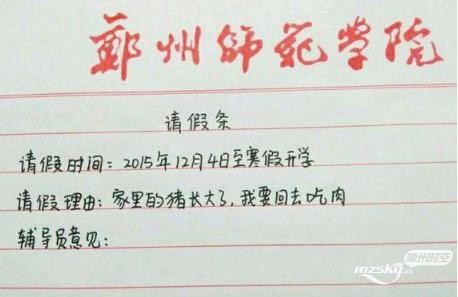 郑州师范学院
请假条
请假时间：2015年12月4日至寒假开学
请假理由：家里的猪长大了，我要回去吃肉
辅导员意见：
梅州时空
mzsky.cc